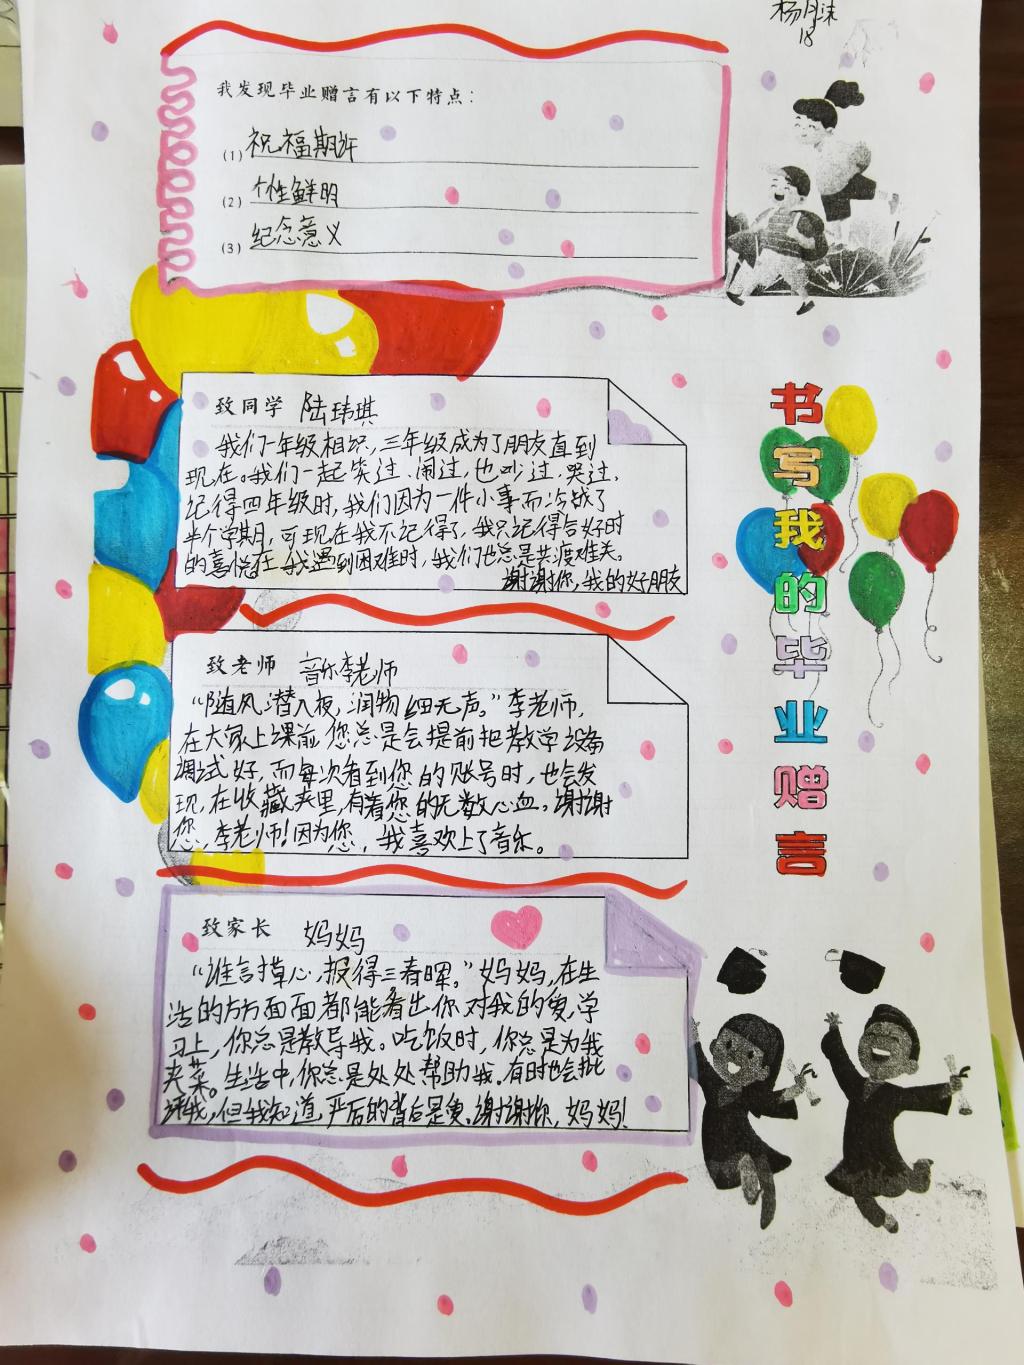 杨月沫
18
我发现毕业赠言有以下特点：
(1) 祝福期许
(2) 个性鲜明
(3) 纪念意义
致同学 陆玮琪
我们一年级相识，三年级成为了朋友直到
现在。我们一起笑过，闹过，也吵过，哭过，
记得四年级时，我们因为一件小事而冷战了
半个学期，可现在我不记得了，我只记得合好时
的喜悦在我遇到困难时，我们也总是共渡难关。
谢谢你，我的好朋友
致老师 音乐李老师
“随风潜入夜，润物细无声。”李老师，
在大家上课前，您总是会提前把教学设备
调试好，而每次看到您的账号时，也会发
现，在收藏夹里，有着您的无数心血。谢谢
您，李老师！因为您，我喜欢上了音乐。
致家长 妈妈
“谁言寸草心，报得三春晖。”妈妈，在生
活的方方面面都能看出你对我的爱，学
习上，你总是教导我。吃饭时，你总是为我
夹菜。生活中，你总是处处帮助我。有时也会批
评我，但我知道，严后的背后是爱。谢谢你，妈妈！
书写我的毕业赠言